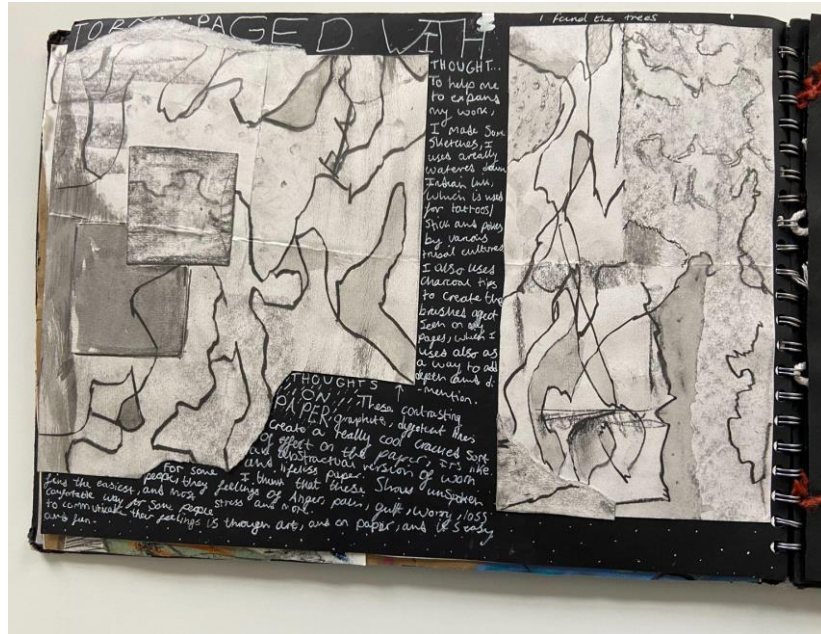 TORN PAGED WITH
THOUGHT...
To help me
to expand
my work,
I made some
sketches, I
uses a really
watered down
Indian Ink,
(which is used
for tattoos/
stick and pokes
by various
tribal cultures
I also uses
charcoal tips
to create the
brushed
seen on my
pages, which I
uses also as
a way to add
depth and di
-mention.
i found the trees
THOUGHTS
ON
PAPER: These contrasting
graphite, lines
Create a really cool cracked sort
of effect on the paper, its like
an abstractual version of worn
and lifeless paper.
I think that these shows unspoken
feelings of Anger, pain, guilt, worry, loss
stress and more.
For some
people they
find the easiest, and most
comfortable way for some people
to communicate their feelings is through art, and on paper, and it's easy
and fun.